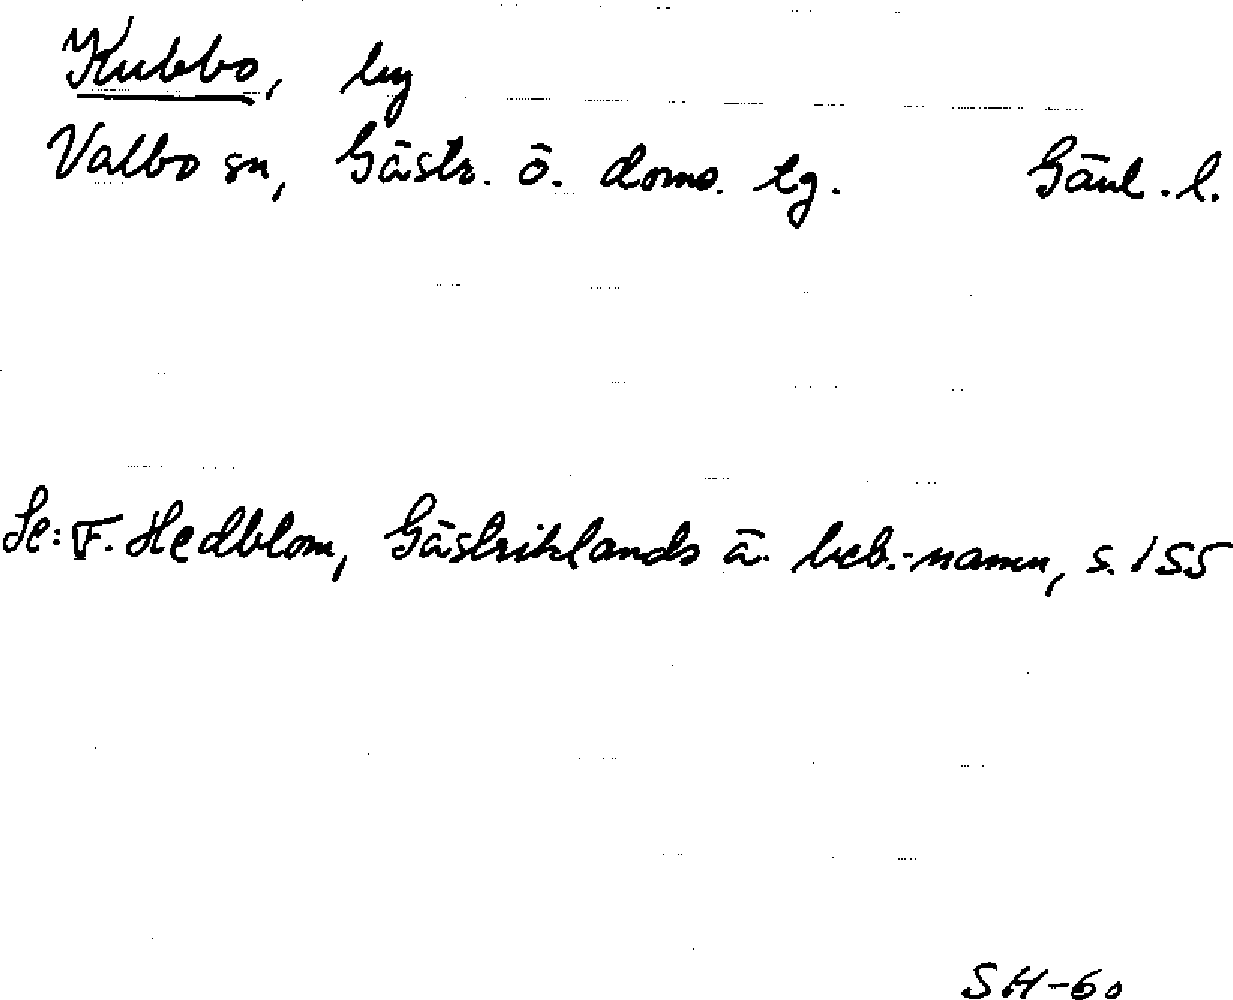 Kubbo, by
Valbo sn, Gästr. ö. doms. tg. Gävl. l.
Se: F. Hedblom, Gästriklands ä. beb.-namn, s. 155
SH-60